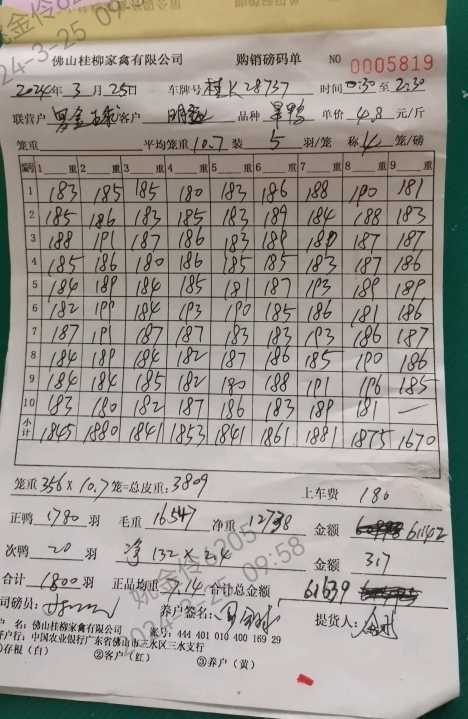 佛山桂柳家禽有限公司 购销磅码单 NO 0005819
2024年3月25日 车牌号 桂K28737 时间 0:30 至 2:30
联营户 客户 品种 单价 4.8 元/斤
笼重 平均笼重 10.7 装 5 羽/笼 称 4 笼/磅
编号 1 重 2 重 3 重 4 重 5 重 6 重 7 重 8 重 9 重
1 183 185 185 180 183 186 188 190 181
2 185 186 183 185 183 189 184 188 183
3 188 191 187 186 183 189 180 187 187
4 185 186 180 186 185 185 183 187 186
5 184 189 184 185 181 187 193 189 189
6 182 199 184 193 190 185 186 181 186
7 187 191 187 187 183 183 193 186 187
8 184 189 184 182 187 186 185 190 186
9 184 184 185 182 180 188 191 196 185
10 183 180 182 187 186 183 189 181 —
小计 1845 1880 1841 1853 1841 1861 1881 1875 1670
笼重 356 × 10.7 笼=总皮重: 3809 上车费 180
正鸭 1780 羽 毛重 16547 净重 12738 金额 61142
次鸭 20 羽 净 132 × 2.4 金额 317
合计 1800 羽 正品均重 7.14 合计总金额 61639
司磅员: 养户签名: 提货人:
户 名: 佛山桂柳家禽有限公司 账号: 444 401 010 400 169 29
开户行: 中国农业银行广东省佛山市三水区三水支行
①存根（白） ②客户（红） ③养户（黄）
姚金伶6205
2024-3-25 09:58